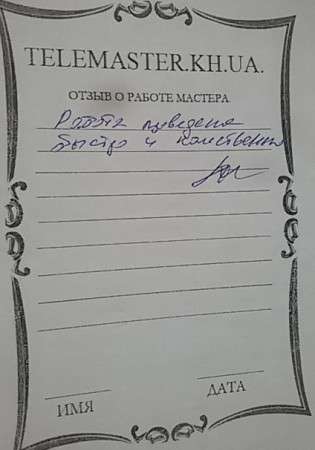 TELEMASTER.KH.UA.
ОТЗЫВ О РАБОТЕ МАСТЕРА
Работа проведена
быстро и качественно
ИМЯ
ДАТА